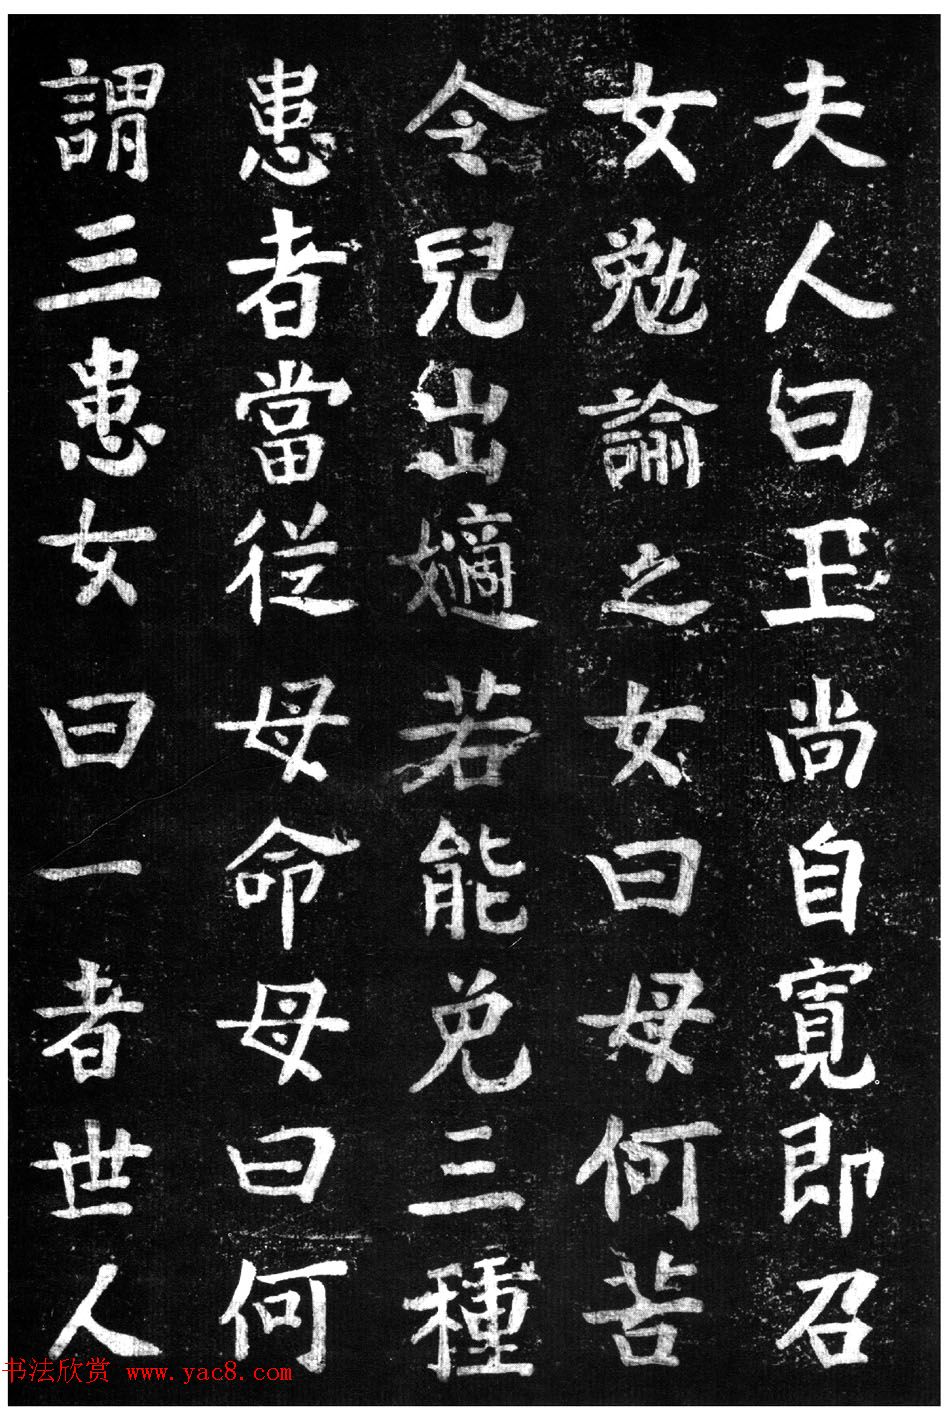 夫人曰王尚自寬即召
女勉諭之女曰母何苦
令兒出嫡若能免三種
患者當從母命母曰何
謂三患女曰一者世人
书法欣赏 www.yac8.com